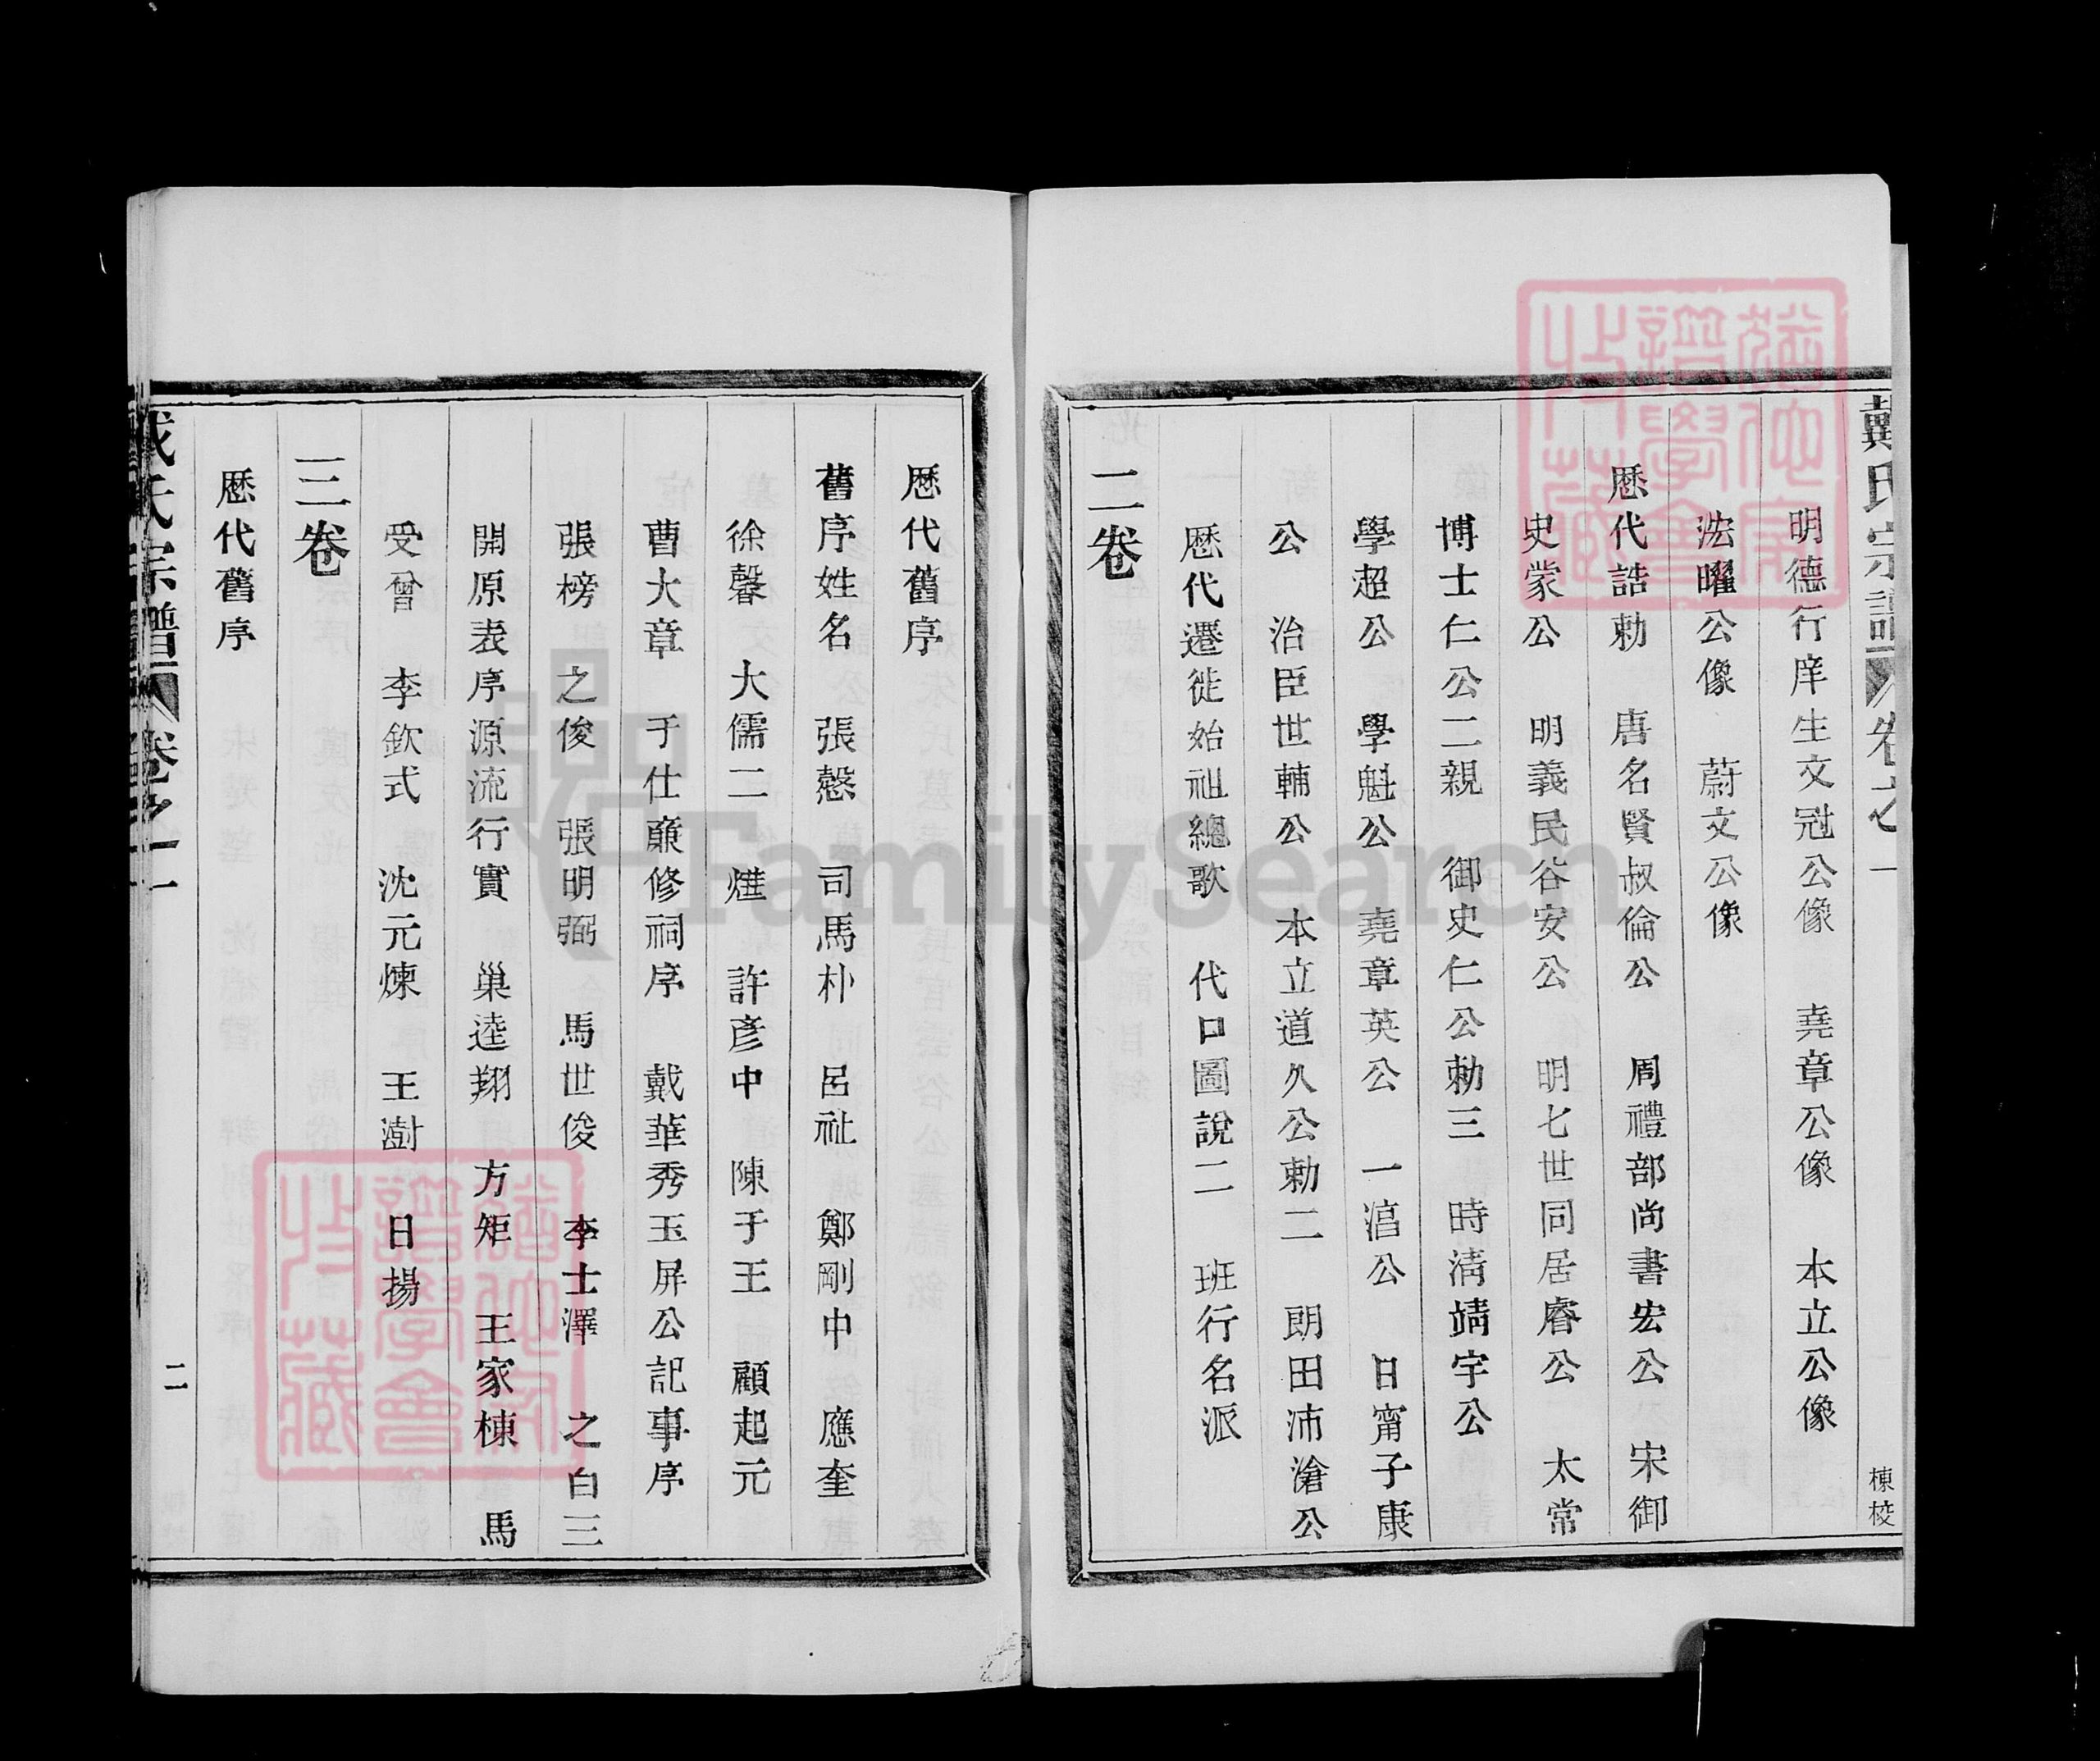 戴氏宗譜 卷之一
棟校
明德行庠生文冠公像 堯章公像 本立公像
浤曜公像 蔚文公像
歷代誥勅 唐名賢叔倫公 周禮部尚書宏公 宋御
史蒙公 明義民谷安公 明七世同居睿公 太常
博士仁公二親 御史仁公勅三 時清靖宇公
學超公 學魁公 堯章英公 一涫公 日甯子康
公 治臣世輔公 本立道久公勅二 朗田沛滄公
歷代遷徙始祖總歌 代口圖說二 班行名派
二卷
歷代舊序
舊序姓名 張慤 司馬朴 呂祉 鄭剛中 應奎
徐馨 大儒二 煃 許彥中 陳于王 顧起元
曹大章 于仕廉修祠序 戴華秀玉屏公記事序
張榜 之俊 張明弼 馬世俊 李士澤 之白三
開原表序源流行實 巢逵翔 方矩 王家棟 馬
受曾 李欽式 沈元煉 王澍 日揚
三卷
歷代舊序
戴氏宗譜 卷之一
二
FamilySearch